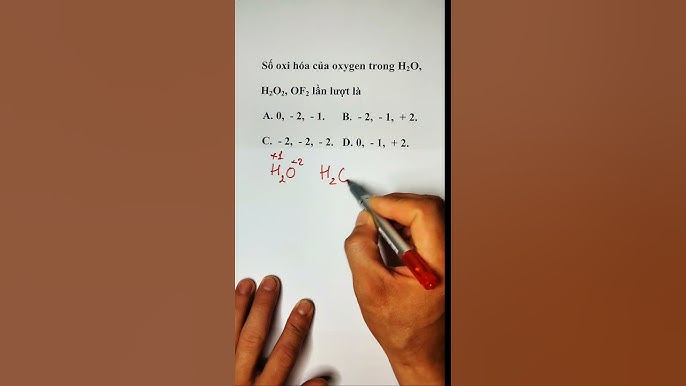 Số oxi hóa của oxygen trong H₂O,
H₂O₂, OF₂ lần lượt là
A. 0, - 2, - 1. B. - 2, - 1, + 2.
C. - 2, - 2, - 2. D. 0, - 1, + 2.
+1 -2
H₂O H₂